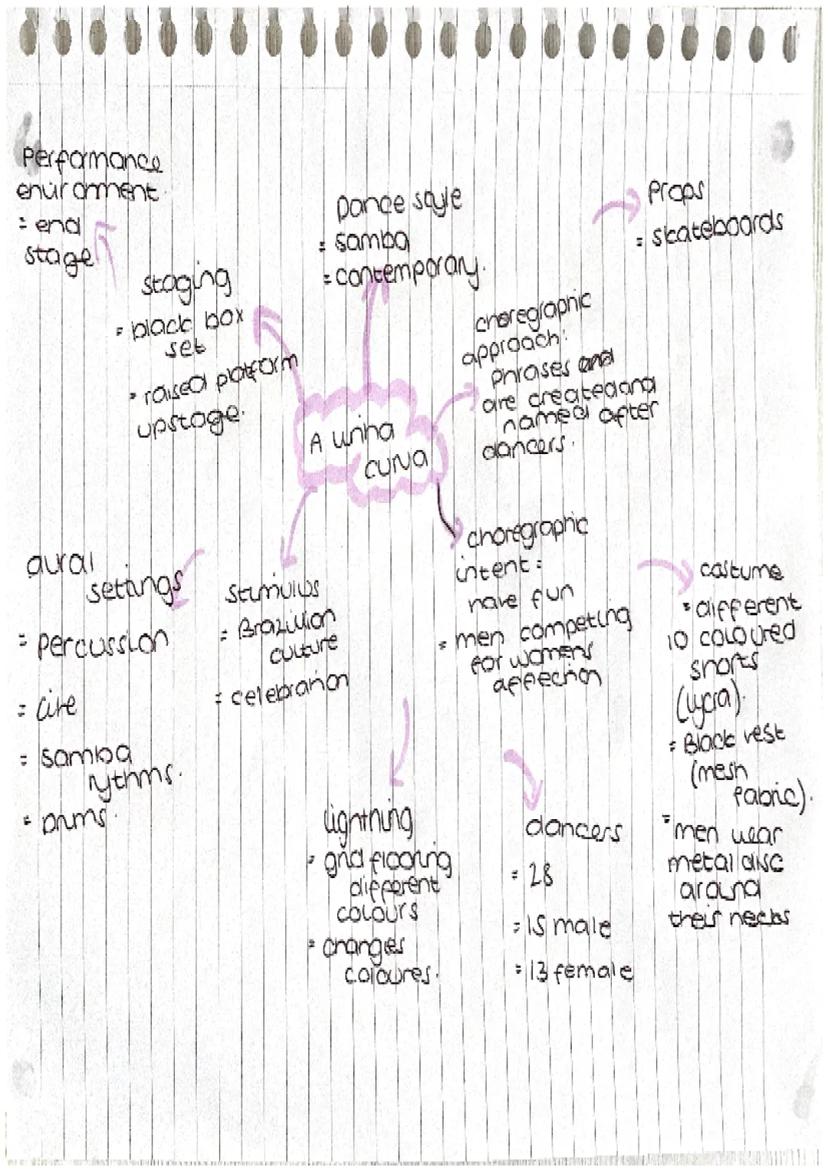 Performance
enviroment.
= end
stage
staging
= black box
set
= raised platform
upstage.
Dance style
= samba
= contemporary.
Props
= skateboards
choregraphic
approach:
phrases and
are created and
named after
dancers.
A linha
curva
choregraphic
intent:
have fun
= men competing
for womens
affection
aural
settings
= percussion
= live
= samba
rythms.
= Drums.
stimulus
= Brazilian
culture
= celebration
costume
= different
10 coloured
shorts
(lycra).
= Black vest
(mesh
fabric).
= men wear
metal disc
around
their necks
lightning
= grid flooring
different
colours
= changes
coloures.
dancers
= 28
= 15 male
= 13 female